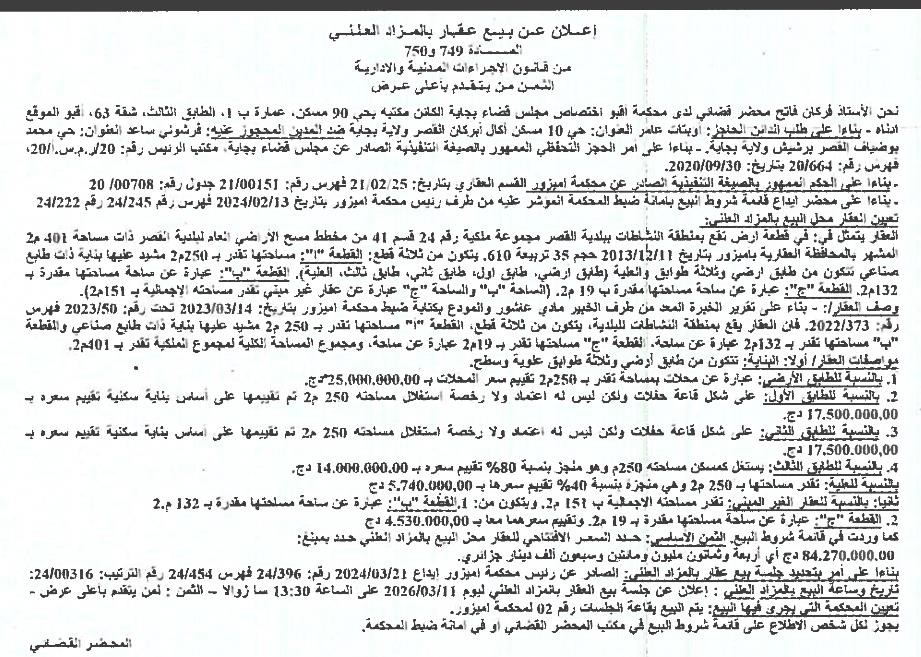 إعلان عن بيع عقار بالمزاد العلني
المادة 749 و750
من قانون الإجراءات المدنية والإدارية
الثمن من يتقدم بأعلى عرض
نحن الأستاذ فركان فاتح محضر قضائي لدى محكمة أقبو اختصاص مجلس قضاء بجاية الكائن مكتبه بحي 90 مسكن، عمارة ب 1، الطابق الثالث، شقة 63، أقبو الموقع
أدناه - بناءا على طلب الدائن الحاجز: أوبتات عامر العنوان: حي 10 مسكن أكال أبركان القصر ولاية بجاية ضد المدين المحجوز عليه: فرشوني ساعد العنوان: حي محمد
بوضياف القصر برشيش ولاية بجاية. - بناءا على أمر الحجز التحفظي الممهور بالصيغة التنفيذية الصادر عن مجلس قضاء بجاية، مكتب الرئيس رقم: 20/ر.م.س.ا/20،
فهرس رقم: 20/664 بتاريخ: 2020/09/30.
- بناءا على الحكم الممهور بالصيغة التنفيذية الصادر عن محكمة أميزور القسم العقاري بتاريخ: 21/02/25 فهرس رقم: 21/00151 جدول رقم: 00708/ 20
- بناءا على محضر إيداع قائمة شروط البيع بأمانة ضبط المحكمة المؤشر عليه من طرف رئيس محكمة أميزور بتاريخ 2024/02/13 فهرس رقم 24/245 رقم 24/222
تعيين العقار محل البيع بالمزاد العلني:
العقار يتمثل في: في قطعة أرض تقع بمنطقة النشاطات ببلدية القصر مجموعة ملكية رقم 24 قسم 41 من مخطط مسح الأراضي العام لبلدية القصر ذات مساحة 401 م2
المشهر بالمحافظة العقارية بأميزور بتاريخ 2013/12/11 حجم 35 تربيعة 610. يتكون من ثلاثة قطع: القطعة "أ": مساحتها تقدر بـ 250م2 مشيد عليها بناية ذات طابع
صناعي تتكون من طابق أرضي وثلاثة طوابق والعلية (طابق أرضي، طابق أول، طابق ثاني، طابق ثالث، العلية). القطعة "ب": عبارة عن ساحة مساحتها مقدرة بـ
132م2. القطعة "ج": عبارة عن ساحة مساحتها مقدرة ب 19 م2. (الساحة "ب" والساحة "ج" عبارة عن عقار غير مبني تقدر مساحته الإجمالية بـ 151م2).
وصف العقار/: - بناء على تقرير الخبرة المعد من طرف الخبير مادي عاشور والمودع بكتابة ضبط محكمة أميزور بتاريخ: 2023/03/14 تحت رقم: 2023/50 فهرس
رقم: 2022/373. فإن العقار يقع بمنطقة النشاطات للبلدية، يتكون من ثلاثة قطع، القطعة "أ" مساحتها تقدر بـ 250 م2 مشيد عليها بناية ذات طابع صناعي والقطعة
"ب" مساحتها تقدر بـ 132م2 عبارة عن ساحة. القطعة "ج" مساحتها تقدر بـ 19م2 عبارة عن ساحة، ومجموع المساحة الكلية لمجموع الملكية تقدر بـ 401م2.
مواصفات العقار/ أولا: البناية: تتكون من طابق أرضي وثلاثة طوابق علوية وسطح.
1. بالنسبة للطابق الأرضي: عبارة عن محلات بمساحة تقدر بـ 250م2 تقييم سعر المحلات بـ 25.000.000,00دج.
2. بالنسبة للطابق الأول: على شكل قاعة حفلات ولكن ليس له اعتماد ولا رخصة استغلال مساحته 250 م2 تم تقييمها على أساس بناية سكنية تقييم سعره بـ
17.500.000,00 دج.
3. بالنسبة للطابق الثاني: على شكل قاعة حفلات ولكن ليس له اعتماد ولا رخصة استغلال مساحته 250 م2 تم تقييمها على أساس بناية سكنية تقييم سعره بـ
17.500.000,00 دج.
4. بالنسبة للطابق الثالث: يستغل كمسكن مساحته 250م وهو منجز بنسبة 80% تقييم سعره بـ 14.000.000,00 دج.
بالنسبة للعلية: تقدر مساحتها بـ 250 م2 وهي منجزة بنسبة 40% تقييم سعرها بـ 5.740.000,00 دج
ثانيا: بالنسبة للعقار الغير المبني: تقدر مساحته الإجمالية ب 151 م2. ويتكون من: 1.القطعة "ب": عبارة عن ساحة مساحتها مقدرة بـ 132 م.2
2. القطعة "ج": عبارة عن ساحة مساحتها مقدرة بـ 19 م2. وتقييم سعرهما معا بـ 4.530.000,00 دج
كما وردت في قائمة شروط البيع. الثمن الأساسي: حدد السعر الافتتاحي للعقار محل البيع بالمزاد العلني حدد بمبلغ:
84.270.000.00 دج أي أربعة وثمانون مليون ومائتين وسبعون ألف دينار جزائري.
بناءا على أمر بتحديد جلسة بيع عقار بالمزاد العلني: الصادر عن رئيس محكمة أميزور إيداع 2024/03/21 رقم: 24/396 فهرس 24/454 رقم الترتيب: 24/00316:
تاريخ وساعة البيع بالمزاد العلني : إعلان عن جلسة بيع العقار بالمزاد العلني ليوم 2026/03/11 على الساعة 13:30 سا زوالا – الثمن : لمن يتقدم بأعلى عرض -
تعيين المحكمة التي يجرى فيها البيع: يتم البيع بقاعة الجلسات رقم 02 لمحكمة أميزور.
يجوز لكل شخص الاطلاع على قائمة شروط البيع في مكتب المحضر القضائي أو في أمانة ضبط المحكمة.
المحضر القضائي